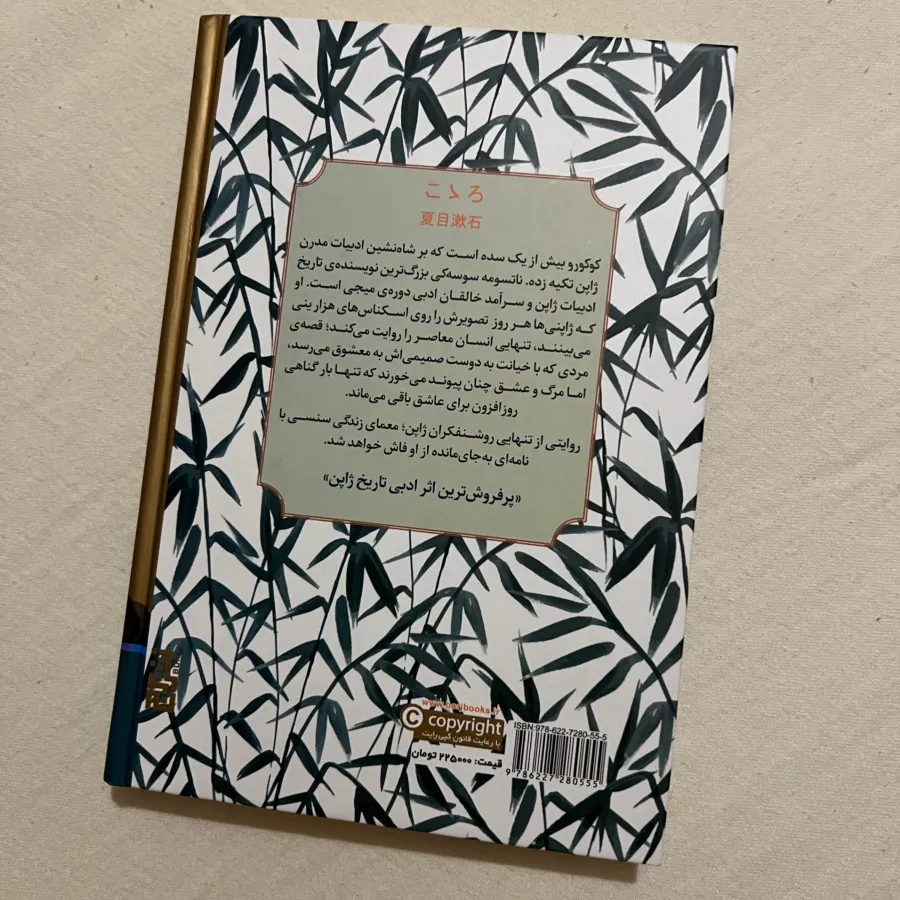 こゝろ
夏目漱石
کوکورو بیش از یک سده است که بر شاه‌نشین ادبیات مدرن
ژاپن تکیه زده. ناتسومه سوسه‌کی بزرگ‌ترین نویسنده‌ی تاریخ
ادبیات ژاپن و سرآمد خالقان ادبی دوره‌ی میجی است. او
که ژاپنی‌ها هر روز تصویرش را روی اسکناس‌های هزار ینی
می‌بینند، تنهایی انسان معاصر را روایت می‌کند؛ قصه‌ی
مردی که با خیانت به دوست صمیمی‌اش به معشوق می‌رسد،
اما مرگ و عشق چنان پیوند می‌خورند که تنها بار گناهی
روزافزون برای عاشق باقی می‌ماند.
روایتی از تنهایی روشنفکران ژاپن؛ معمای زندگی سنسی با
نامه‌ای به‌جای‌مانده از او فاش خواهد شد.
«پرفروش‌ترین اثر ادبی تاریخ ژاپن»
© copyright
با رعایت قانون کپی‌رایت
قیمت: ۲۲۵۰۰۰ تومان
ISBN: 978-622-7280-55-5
9 786227 280555